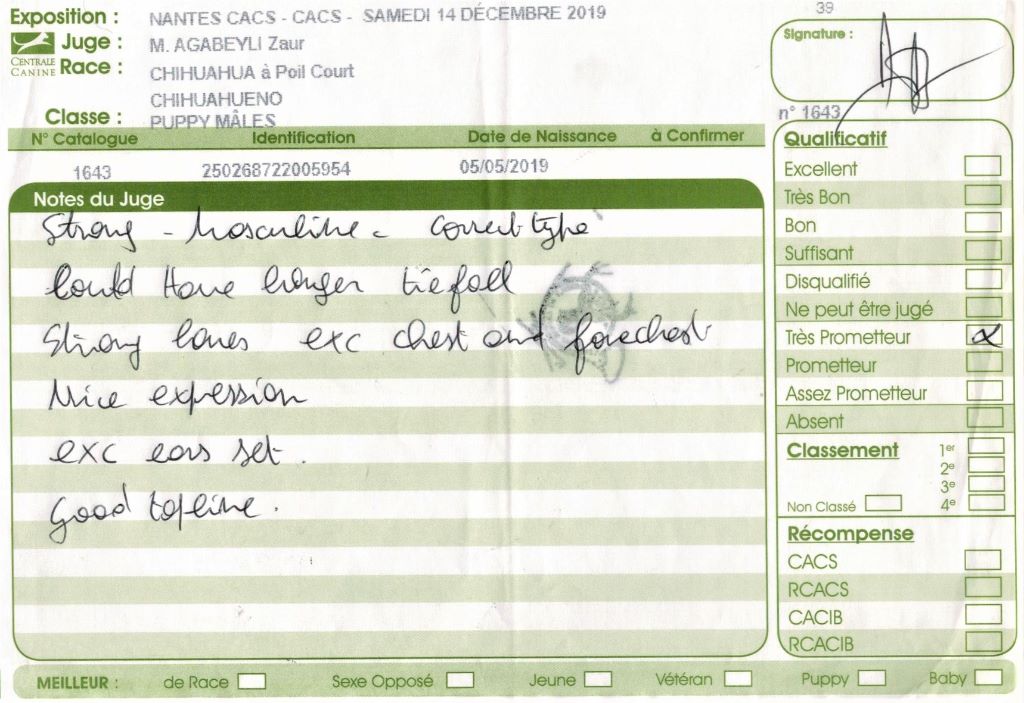 Exposition : NANTES CACS - CACS - SAMEDI 14 DÉCEMBRE 2019
Juge : M. AGABEYLI Zaur
CENTRALE
CANINE
Race : CHIHUAHUA à Poil Court
CHIHUAHUENO
Classe : PUPPY MÂLES
39
Signature :
n° 1643
N° Catalogue Identification Date de Naissance à Confirmer
1643 250268722005954 05/05/2019
Notes du Juge
Strong - Masculine - Correct type
Could Have longer
Strong bones exc chest and forechest
Nice expression
exc ears set.
Good topline.
Qualificatif
Excellent
Très Bon
Bon
Suffisant
Disqualifié
Ne peut être jugé
Très Prometteur x
Prometteur
Assez Prometteur
Absent
Classement 1er
2e
3e
Non Classé 4e
Récompense
CACS
RCACS
CACIB
RCACIB
MEILLEUR : de Race Sexe Opposé Jeune Vétéran Puppy Baby